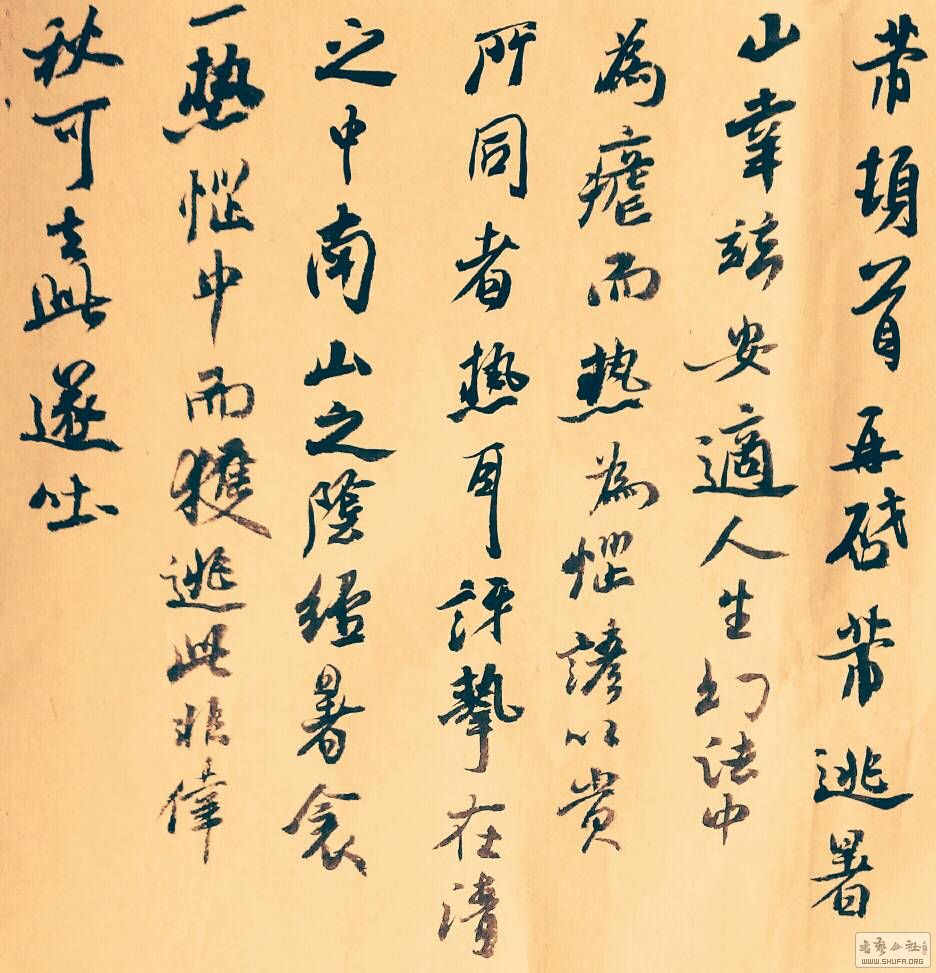 芾頓首再啓芾逃暑
山幸兹安適人生幻法中
為瘧而熱為惱諺以貴
所同者熱耳訝摯在清
之中南山之陰經暑衾
一熱惱中而獲逃此非倖
秋可去此遂吐
書藝公社
WWW.SHUFA.ORG